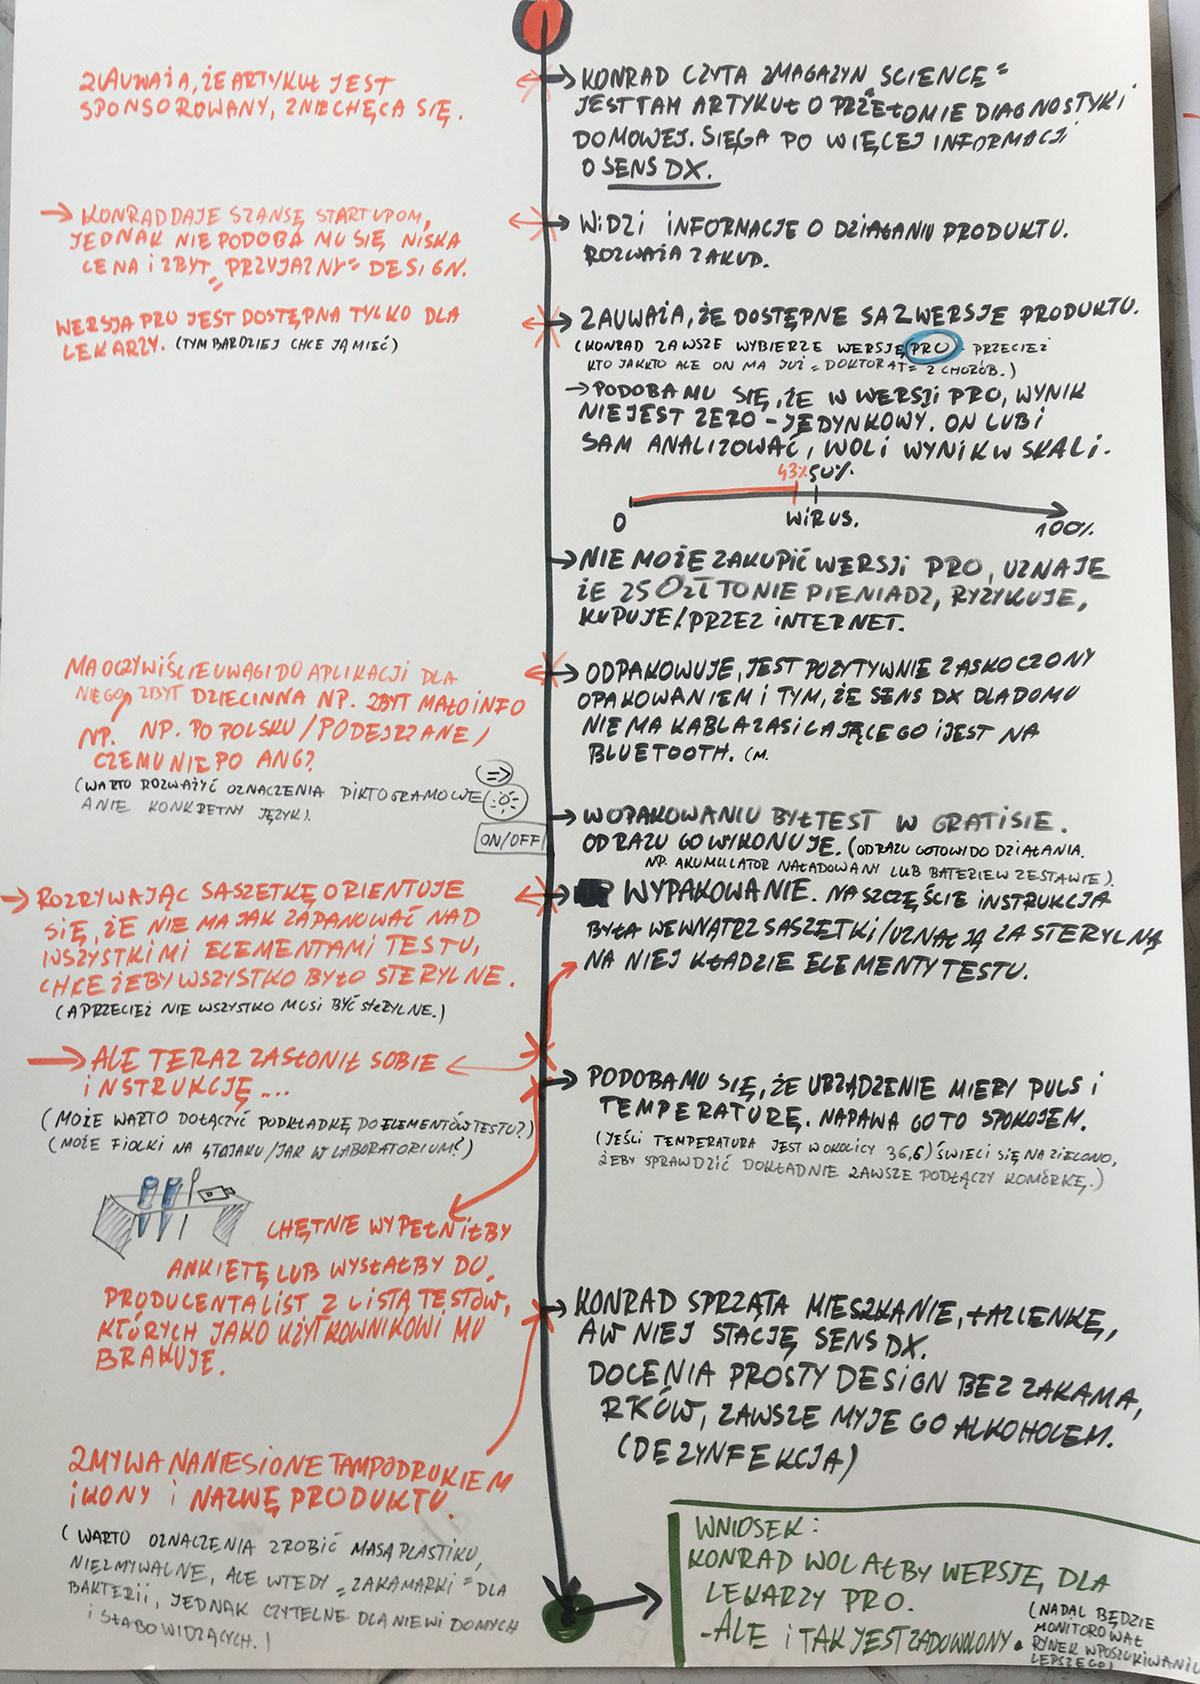 ZAUWAŻA, ŻE ARTYKUŁ JEST
SPONSOROWANY, ZNIECHĘCA SIĘ.
→ KONRAD CZYTA "MAGAZYN SCIENCE"
JEST TAM ARTYKUŁ O PRZEŁOMIE DIAGNOSTYKI
DOMOWEJ. SIĘGA PO WIĘCEJ INFORMACJI
O SENS DX.
→ KONRAD DAJE SZANSĘ STARTUPOM,
JEDNAK NIE PODOBA MU SIĘ NISKA
CENA I ZBYT "PRZYJAZNY" DESIGN.
→ WIDZI INFORMACJE O DZIAŁANIU PRODUKTU.
ROZWAŻA ZAKUP.
WERSJA PRO JEST DOSTĘPNA TYLKO DLA
LEKARZY. (TYM BARDZIEJ CHCE JĄ MIEĆ)
→ ZAUWAŻA, ŻE DOSTĘPNE SĄ 2 WERSJE PRODUKTU.
(KONRAD ZAWSZE WYBIERZE WERSJĘ PRO PRZECIEŻ
KTO JAK KTO ALE ON MA JUŻ "DOKTORAT" Z CHORÓB.)
→ PODOBA MU SIĘ, ŻE W WERSJI PRO, WYNIK
NIE JEST ZERO-JEDYNKOWY. ON LUBI
SAM ANALIZOWAĆ, WOLI WYNIK W SKALI.
43% 50%
0 WIRUS. 100%
→ NIE MOŻE ZAKUPIĆ WERSJI PRO, UZNAJE
ŻE 250ZŁ TO NIE PIENIĄDZ, RYZYKUJE,
KUPUJE/PRZEZ INTERNET.
MA OCZYWIŚCIE UWAGI DO APLIKACJI DLA
NIEGO ZBYT DZIECINNA NP. ZBYT MAŁO INFO
NP. NP. PO POLSKU/PODEJRZANE/
CZEMU NIE PO ANG?
(WARTO ROZWAŻYĆ OZNACZENIA PIKTOGRAMOWE
A NIE KONKRETNY JĘZYK).
ON/OFF
→ ODPAKOWUJE, JEST POZYTYWNIE ZASKOCZONY
OPAKOWANIEM I TYM, ŻE SENS DX DLA DOMU
NIE MA KABLA ZASILAJĄCEGO I JEST NA
BLUETOOTH. (M.
→ W OPAKOWANIU BYŁ TEST W GRATISIE.
OD RAZU GO WYKONUJE. (OD RAZU GOTOWY DO DZIAŁANIA.
NP. AKUMULATOR NAŁADOWANY LUB BATERIE W ZESTAWIE).
→ ROZRYWAJĄC SASZETKĘ ORIENTUJE
SIĘ, ŻE NIE MA JAK ZAPANOWAĆ NAD
WSZYSTKIMI ELEMENTAMI TESTU,
CHCE ŻEBY WSZYSTKO BYŁO STERYLNE.
(A PRZECIEŻ NIE WSZYSTKO MUSI BYĆ STERYLNE.)
→ WYPAKOWANIE. NA SZCZĘŚCIE INSTRUKCJA
BYŁA WEWNĄTRZ SASZETKI/UZNAŁ JĄ ZA STERYLNĄ
NA NIEJ KŁADZIE ELEMENTY TESTU.
→ ALE TERAZ ZASŁONIŁ SOBIE
INSTRUKCJĘ...
(MOŻE WARTO DOŁĄCZYĆ PODKŁADKĘ DO ELEMENTÓW TESTU?)
(MOŻE FIOLKI NA STOJAKU/JAK W LABORATORIUM?)
→ PODOBA MU SIĘ, ŻE URZĄDZENIE MIERZY PULS I
TEMPERATURĘ. NAPAWA GO TO SPOKOJEM.
(JEŚLI TEMPERATURA JEST W OKOLICY 36,6) ŚWIECI SIĘ NA ZIELONO,
ŻEBY SPRAWDZIĆ DOKŁADNIE ZAWSZE PODŁĄCZY KOMÓRKĘ.)
CHĘTNIE WYPEŁNIŁBY
ANKIETĘ LUB WYSŁAŁBY DO
PRODUCENTA LIST Z LISTĄ TESTÓW,
KTÓRYCH JAKO UŻYTKOWNIKOWI MU
BRAKUJE.
→ KONRAD SPRZĄTA MIESZKANIE, +ŁAZIENKĘ,
A W NIEJ STACJĘ SENS DX.
DOCENIA PROSTY DESIGN BEZ ZAKAMA,
RKÓW, ZAWSZE MYJE GO ALKOHOLEM.
(DEZYNFEKCJA)
ZMYWA NANIESIONE TAMPODRUKIEM
IKONY I NAZWĘ PRODUKTU.
(WARTO OZNACZENIA ZROBIĆ MASĄ PLASTIKU,
NIEZMYWALNE, ALE WTEDY "ZAKAMARKI" DLA
BAKTERII, JEDNAK CZYTELNE DLA NIEWIDOMYCH
I SŁABOWIDZĄCYCH.)
WNIOSEK:
KONRAD WOLAŁBY WERSJĘ, DLA
LEKARZY PRO.
-ALE I TAK JEST ZADOWOLONY.
(NADAL BĘDZIE
MONITOROWAŁ
RYNEK W POSZUKIWANIU
LEPSZEGO)